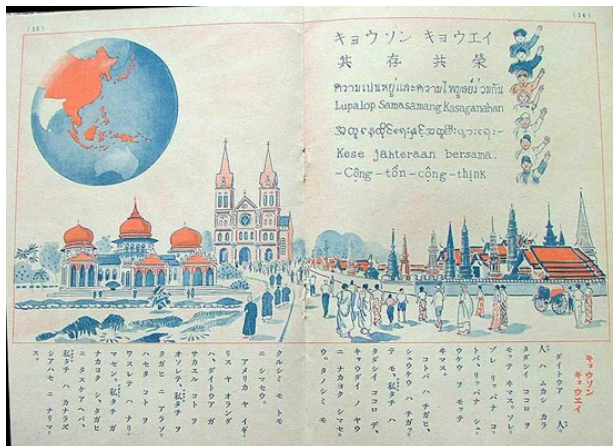 (14)
キョウソン キョウエイ
共存共榮
ความเปนหยู่และความไพบูลย์ร่วมกัน
Lupalop Samasamang Kasaganahan
Kese jahteraan bersama.
-Cộng-tồn-cộng-think
キョウソン
キョウエイ
ダイトウア ノ 人
人 ハ ムカシ カラ
タダシイ ココロ ヲ
モッテ ヰマス。ソレ
ゾレ リッパナ コ
トバ、リッパナ シュ
ウカウ ヲ モッテ
ヰマス。
コトバ ハ チガヒ、
シュウカウ ハ チガッ
テ モ、私タチ ハ
タダシイ ココロ デ、
キャウダイ ノ ヤウ
ニ ナカヨク シマセ
ウ。タノシミ モ
(15)
クルシミ モ トモ
ニ シマセウ。
アメリカ ヤ イギ
リス ヤ オランダ
ハ、ダイトウア ガ
サカエル コト ヲ
オソレテ、私タチ ヲ
タガヒ ニ アラソ
ハセタ コト ヲ
ワスレテ ハ ナリ
マセン。私タチ ガ
ナカヨク シ、タガヒ
ニ タスケアヘバ、
私タチ ハ カナラズ
シアハセ ニ ナリマ
ス。